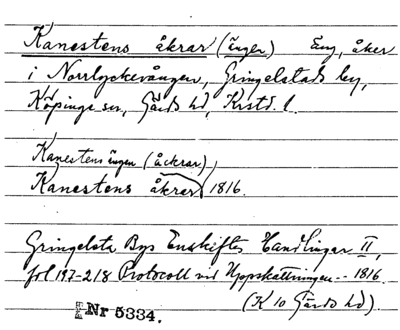 Kanestens åkrar (ängen) Äng, åker
i Norrlyckevången, Gringelstads by,
Köpinge sn, Gärds hd, Krstd. l.
Kanestens ängen (åckrar)
Kanestens åkrar 1816.
Gringelsta Bys Enskiftes Handlingar II,
fol 197-218 Protocoll vid Uppskattningen -- 1816.
(K 10 Gärds hd).
Nr 5334.